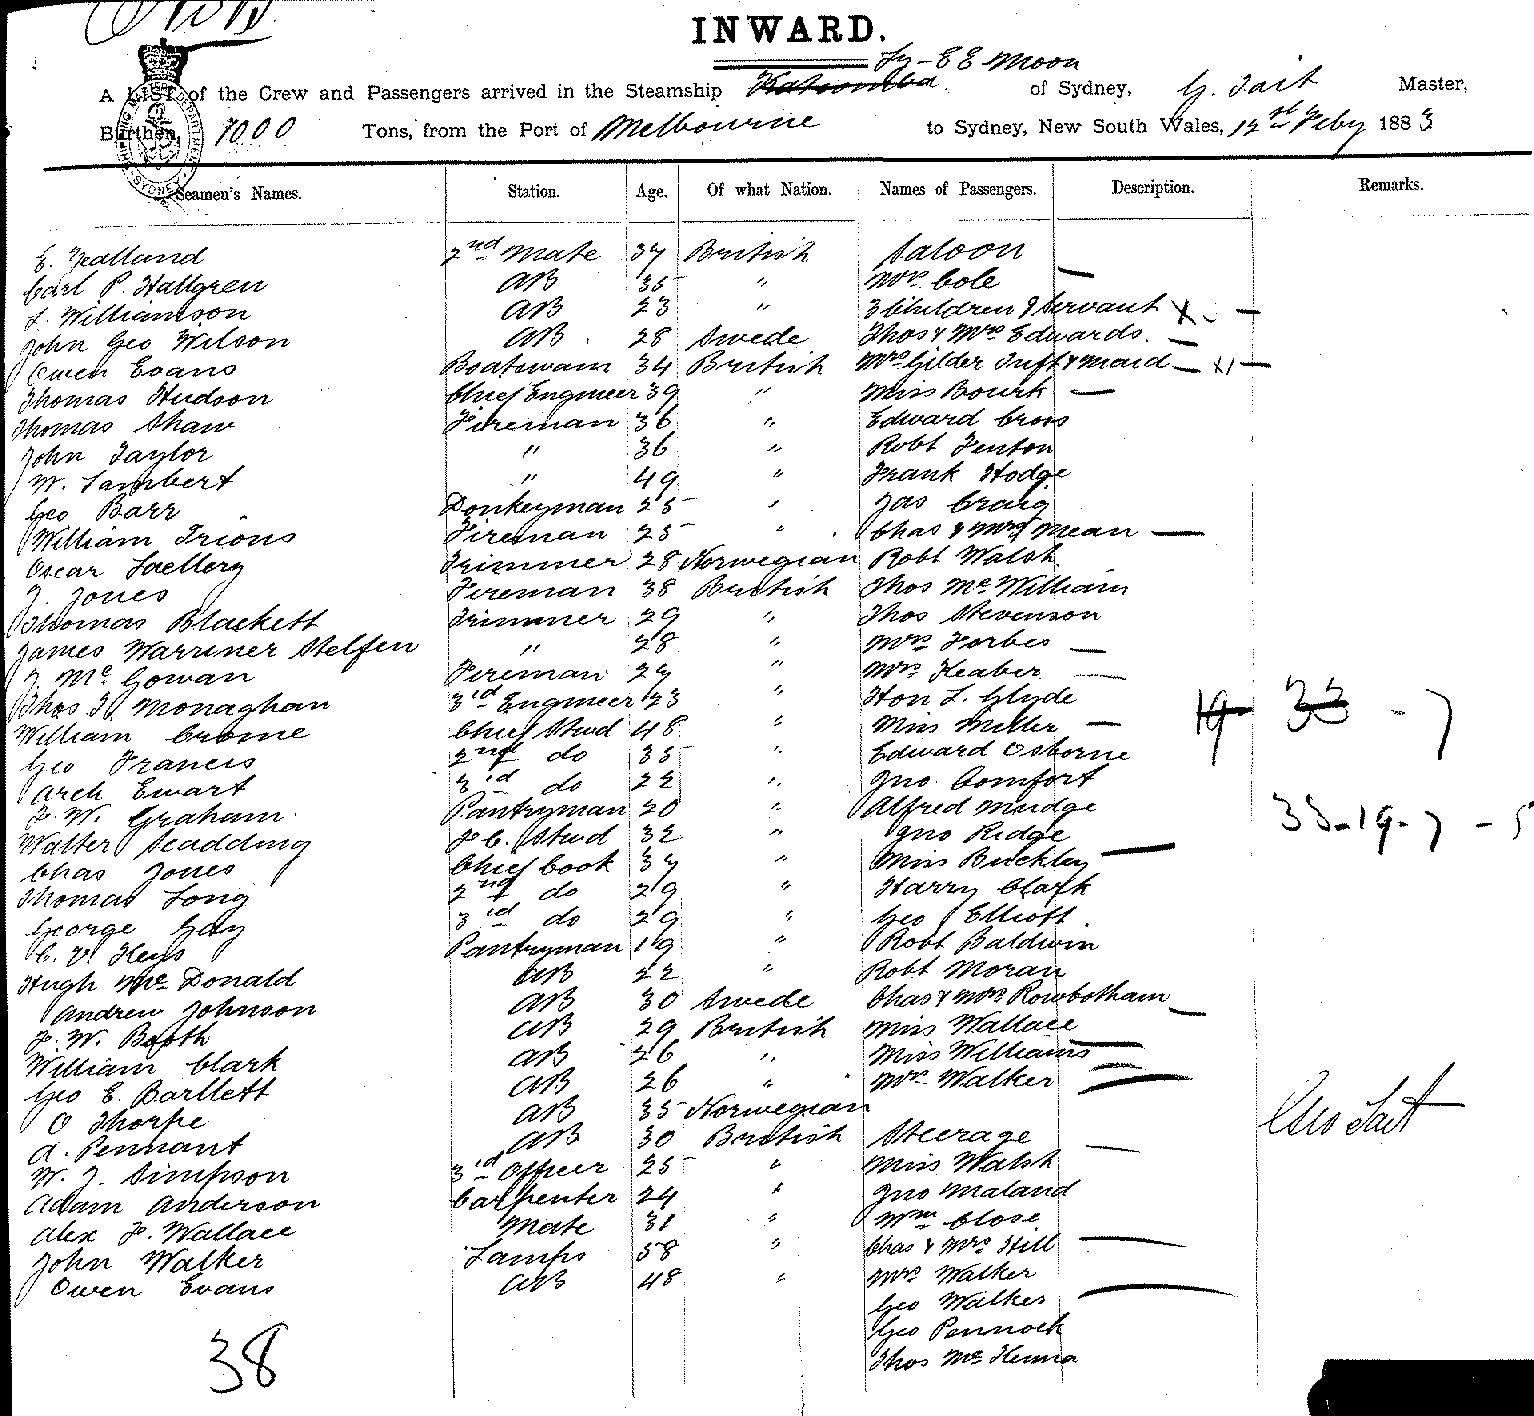 INWARD.
Ly-EE Moon
A LIST of the Crew and Passengers arrived in the Steamship Katoomba of Sydney, G. Tait Master,
Burthen, 1000 Tons, from the Port of Melbourne to Sydney, New South Wales, 12th Feby 1883
Seamen's Names. Station. Age. Of what Nation. Names of Passengers. Description. Remarks.
E. Yealland 2nd Mate 37 British Saloon
Carl P. Hallgren AB 35 " Mrs Cole —
L. Williamson AB 23 " 3 Children & Servant X. —
John Geo Wilson AB 28 Swede Thos & Mrs Edwards —
Owen Evans Boatswain 34 British Mrs Gilder Inft & maid — x1 —
Thomas Hudson Chief Engineer 39 " Miss Bourk —
Thomas Shaw Fireman 36 " Edward Cross
John Taylor " 36 " Robt Fenton
W. Lambert " 49 " Frank Hodge
Geo Barr Donkeyman 25 " Jas Craig
William Irions Fireman 25 " Chas & Mrs Mean —
Oscar Trimmer 28 Norwegian Robt Walsh
J. Jones Fireman 38 British Thos McWilliam
Thomas Blackett Trimmer 29 " Thos Stevenson
James Warriner Stelfen " 28 " Mrs Forbes —
J McGowan Fireman 27 " Mrs Heaber —
Thos J. Monaghan 3rd Engineer 23 " Hon L. Glyde 19 33 - 7
William Crome Chief Stwd 48 " Miss Miller —
Geo Francis 2nd do 35 " Edward Osborne
Arch Ewart 3rd do 22 " Jno. Comfort
J. W. Graham Pantryman 20 " Alfred Mudge
Walter Scadding F. C. Stwd 32 " Jno Ridge 33-19-7-5
Chas Jones Chief Cook 37 " Miss Buckley —
Thomas Long 2nd do 29 " Harry Clark
George Gay 3rd do 29 " Geo Elliott
C. V. Heys Pantryman 19 " Robt Baldwin
Hugh McDonald AB 22 " Robt Moran
Andrew Johnson AB 30 Swede Chas & Mrs Rowbotham —
J. W. Booth AB 29 British Miss Wallace —
William Clark AB 26 " Miss Williams —
Geo E. Bartlett AB 26 " Mr Walker —
O Thorpe AB 35 Norwegian Geo Tait
A. Pennant AB 30 British Steerage
W. J. Simpson 3rd Officer 25 " Miss Walsh —
Adam Anderson Carpenter 24 " Jno Maland
Alex F. Wallace Mate 31 " Wm Close
John Walker Lamps 58 " Chas & Mrs Hill —
Owen Evans AB 48 " Mrs Walker
Geo Walker —
Geo Pennock
Thos McKenna
38